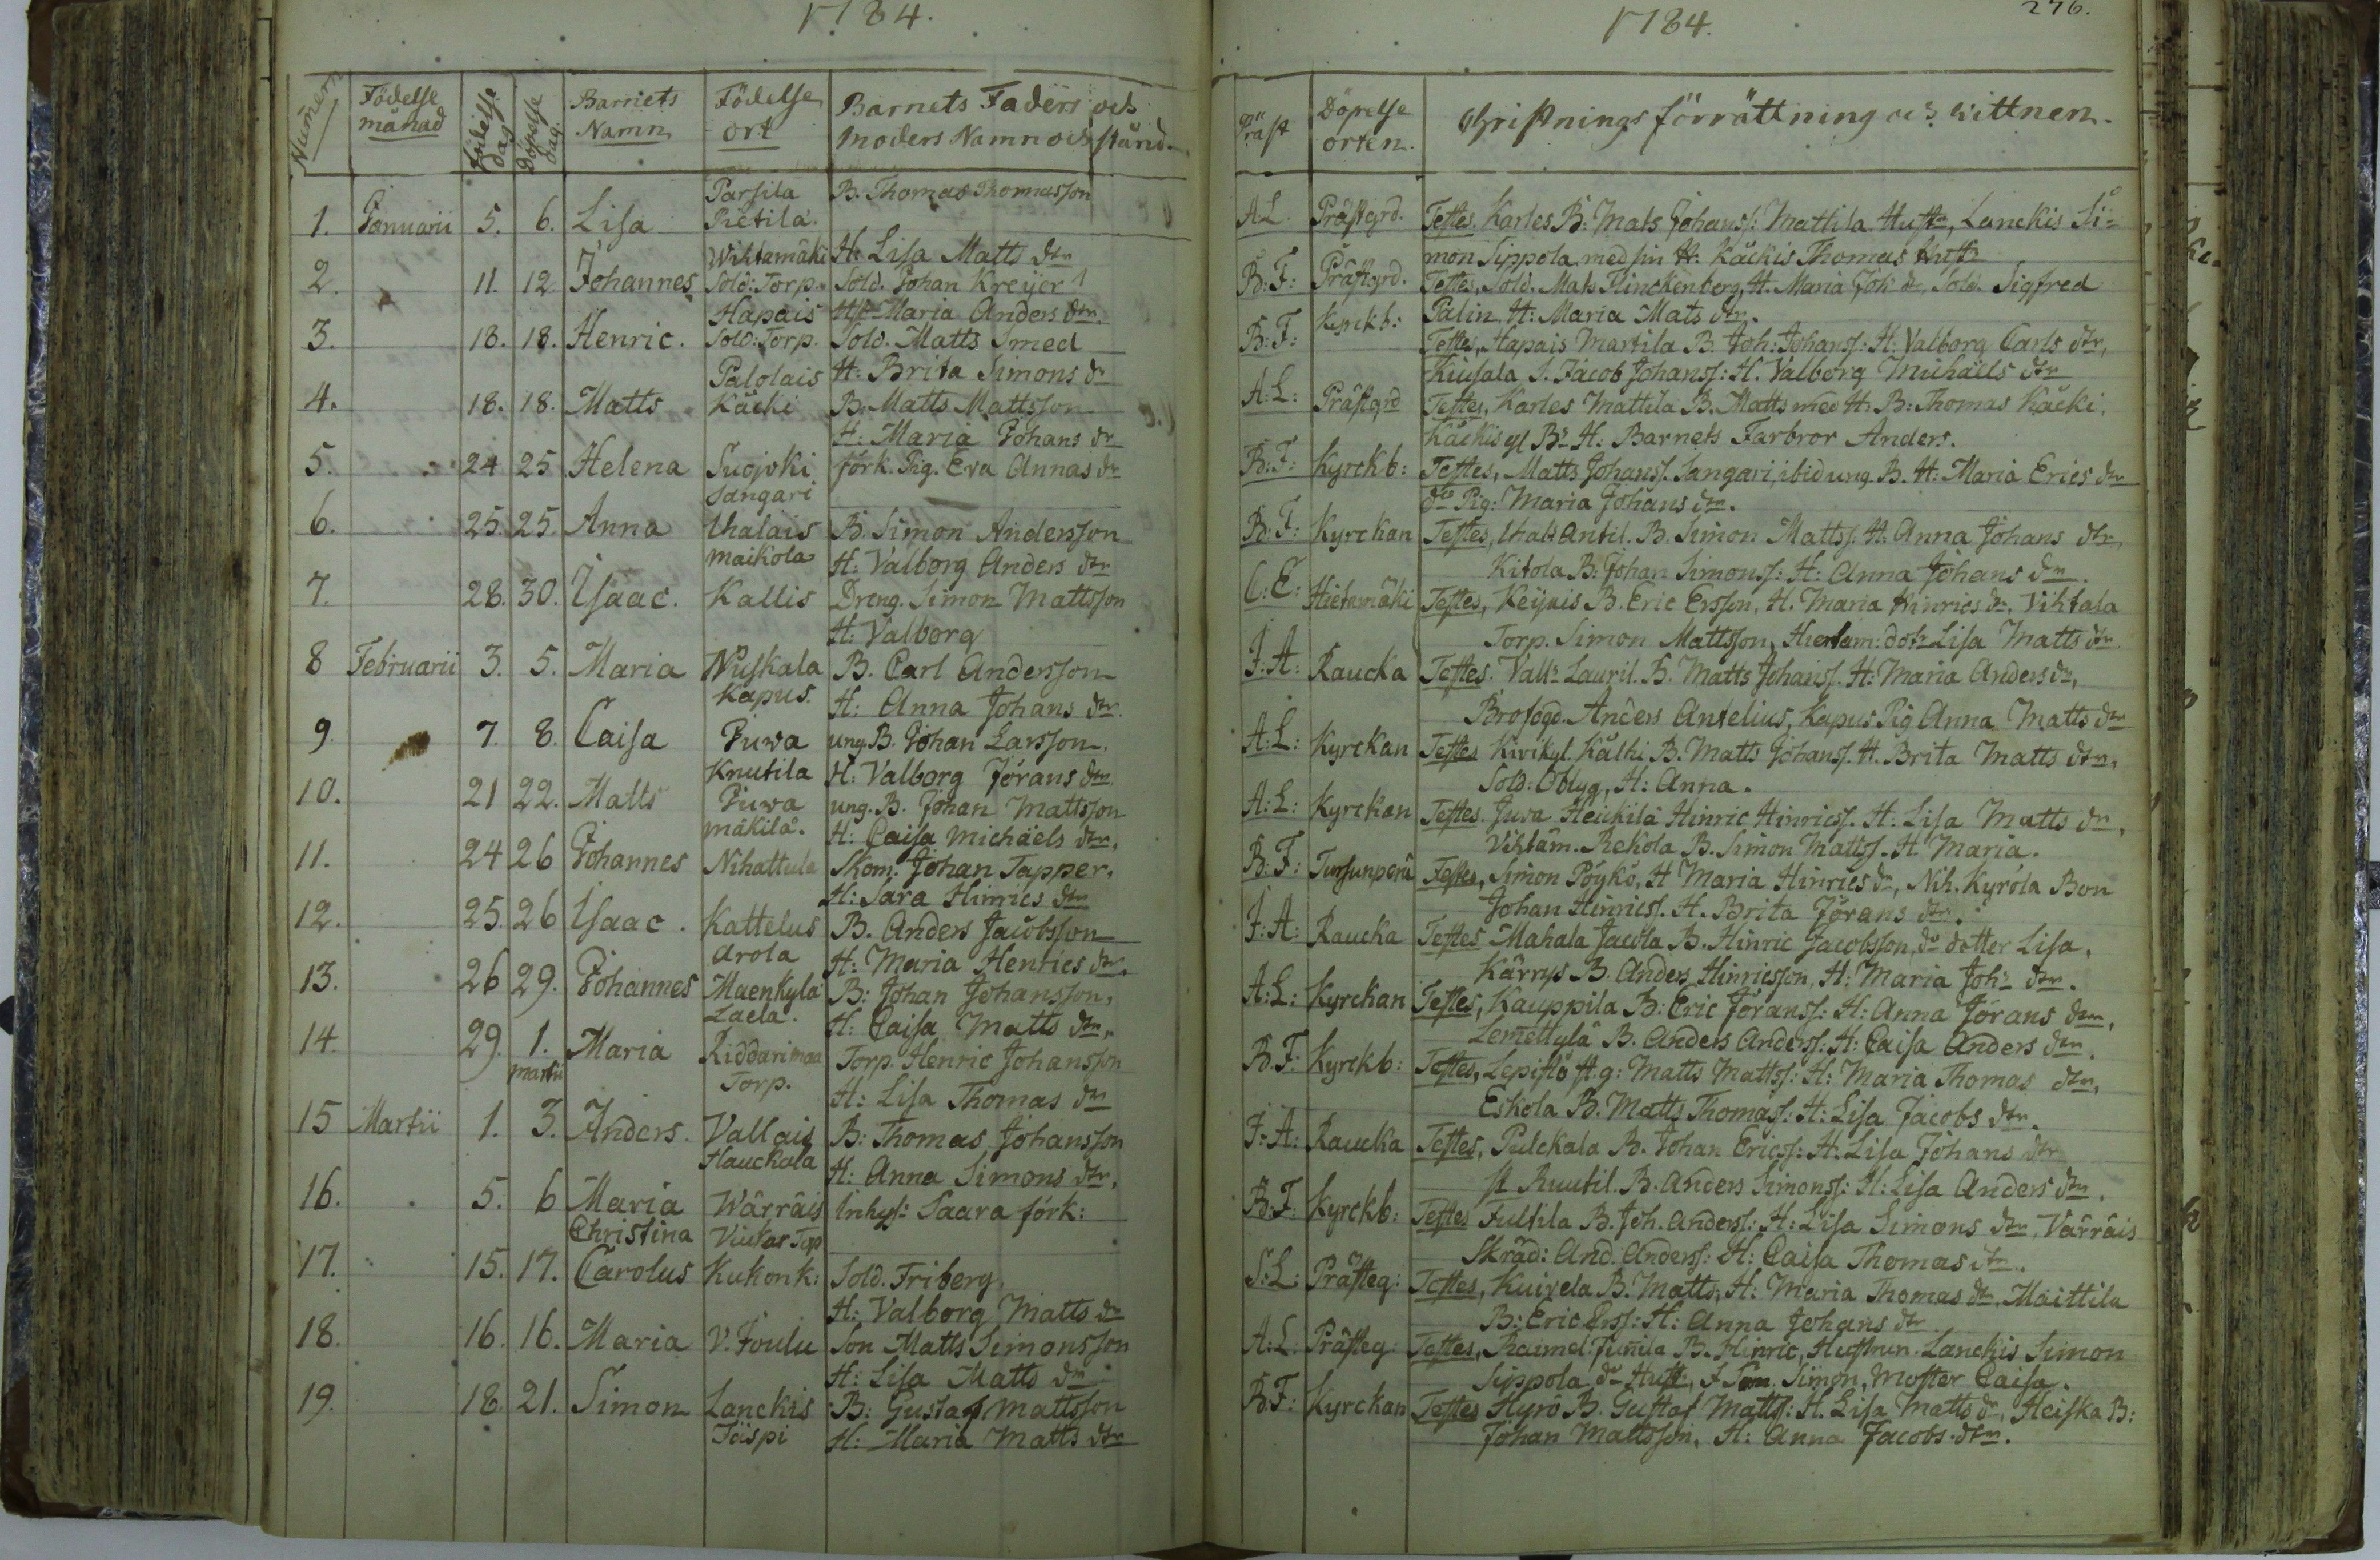 1784.
Numern
Födelse månad
Födelse dag
Döpelse dag.
Barnets Namn
Födelse ort
Barnets Faders och
moders Namn och stånd.
1. Januarii 5. 6. Lisa Parsila Pietilä. B. Thomas Thomasson
H: Lisa Matts dtr
2. 11. 12 Johannes Wiktamäki Sold: Torp. Sold. Johan Kreijer
H: Maria Anders dtr.
3. 18. 18. Henric. Hapais Sold: Torp. Sold. Matts Smed
H: Brita Simons dr
4. 18. 18. Matts Palolais Käcki B. Matts Mattsson
H: Maria Johans dr
5. 24 25 Helena Suojoki Sangari förk. Pig. Eva Annas dr
6. 25. 25. Anna Uhalais maikola B. Simon Andersson
H: Valborg Anders dtr
7. 28. 30. Isaac. Kallis Dreng. Simon Mattsson
H: Valborg
8 Februarii 3. 5. Maria Nuskala Kapus. B. Carl Andersson
H: Anna Johans dtr.
9. 7. 8. Caisa Piuwa Knutila ung. B. Johan Larsson.
H: Valborg Jörans dtr
10. 21 22. Matts Piuwa mäkilä. ung. B. Johan Mattsson
H: Caisa Michaels dtr.
11. 24 26 Johannes Nihattula Skom. Johan Tapper.
H: Sara Hinrics dtr
12. 25. 26 Isaac. Kattelus Arola B. Anders Jacobsson
H: Maria Henrics dtr.
13. 26 29. Johannes Maenkylä Laela. B: Johan Johansson,
H: Caisa Matts dtr.
14. 29. 1. martii Maria Riddarimaa Torp. Torp. Henric Johansson
H: Lisa Thomas dtr
15 Martii 1. 3. Anders. Vallais Hauckola B: Thomas Johansson
H: Anna Simons dtr,
16. 5. 6 Maria Christina Wärräis Viukar Torp Inhys: Saara förk:
17. 15. 17. Carolus Kukonk: Sold. Friberg.
H: Valborg Matts dr
18. 16. 16. Maria V. Joulu Son Matts Simonsson
H: Lisa Matts dtr
19. 18. 21. Simon Lanckis Jäspi B: Gustaf Mattsson
H: Maria Matts dtr
1784.
276.
Präst
Döpelse orten.
Christnings förrättning och vittnen.
A:L. Prästgrd. Testes. Karles B: Mats Johans: Mattila Hustr, Lanckis Si=
mon Sippola med sin H: Käckis Thomas Hustr
B:F: Prästgrd. Testes, Sold. Mats Flinckenberg, H. Maria Joh: dr, Sold. Sigfred
Palin, H: Maria Mats dtr.
B:F: Kyrckb: Testes, Hapais Martila B. Joh: Johans: H: Valborg Carls dtr,
Kiusala S. Jacob Johans: H. Valborg Michaels dtr
A:L: Prästgrd Testes, Karles Mattila B. Matts med H: B: Thomas Käcki,
Käckis gl Bs H: Barnets Farbror Anders.
B:F: Kyrckb: Testes, Matts Johans. Sangari, ibid ung. B. H: Maria Erics dtr
Pig: Maria Johans dtr.
B:F: Kyrckan Testes, Uhals Antil. B. Simon Matts. H: Anna Johans dtr,
Kitola B: Johan Simons: H: Anna Johans dtr.
C:E: Hietamäki Testes, Keijais B. Eric Ersson, H. Maria Hinrics dr, Vihtala
Torp. Simon Mattsson, Hietam: dotr Lisa Matts dtr
J:A: Raucka Testes. Valls Lauril. B. Matts Johans. H: Maria Anders dr,
Brofogd. Anders Antelius, Kapus Pig Anna Matts dtr
A:L: Kyrckan Testes Kivikyl. Kälhi B. Matts Johans. H. Brita Matts dtr,
Sold: Oblyg, H: Anna.
A:L: Kyrckan Testes. Juva Heickilä Hinric Hinrics. H. Lisa Matts dr,
Viktäm. Rekola B. Simon Matts. H. Maria.
B:F: Tursunperä Testes, Simon Pöykö, H Maria Hinrics dr, Nih. Kyröla Bon
Johan Hinrics. H. Brita Jörans dtr.
J:A: Raucka Testes Mahala Jacola B. Hinric Jacobsson, do dotter Lisa,
Kärrys B. Anders Hinricsson, H: Maria Joh: dtr.
A:L: Kyrckan Testes, Kauppila B: Eric Jörans: H: Anna Jörans dtr,
Lemettylä B. Anders Anders: H: Caisa Anders dtr.
B:F: Kyrckb: Testes, Lepistö st.g: Matts Matts: H: Maria Thomas dtr,
Eskola B. Matts Thomas: H: Lisa Jacobs dtr.
J:A: Raucka Testes, Pulckala B. Johan Erics: H: Lisa Johans dtr
st Ruutil. B. Anders Simons: H: Lisa Anders dtr.
B:F: Kyrckb: Testes Fultila B. Joh. Anders: H: Lisa Simons dtr, Värräis
Skräd: And. Anders: H: Caisa Thomas dtr.
S:L: Prästeg: Testes, Kuivela B. Matts, H: Maria Thomas dtr, Maittila
B: Eric Ers: H: Anna Johans dtr
A:L: Prästeg: Testes, Raimel: Junnila B. Hinric, Hustrun. Lanckis Simon
Sippola do Hustr, Simon, Moster Caisa.
B:F: Kyrckan Testes Hyrö B. Gustaf Matts: H. Lisa Matts dr, Heiska B:
Johan Mattsson, H: Anna Jacobs dtr.